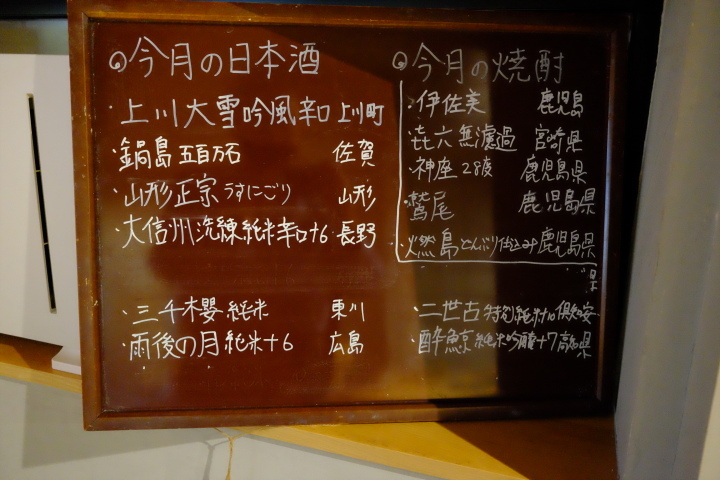 今月の日本酒
・上川大雪吟風辛口 上川町
・鍋島 五百万石 佐賀
・山形正宗 うすにごり 山形
・大信州 洗練純米辛口+6 長野
・三千桜 純米 東川
・雨後の月 純米+6 広島
今月の焼酎
・伊佐美 鹿児島
・㐂六 無濾過 宮崎県
・神座 28度 鹿児島県
・鷲尾 鹿児島県
・燃島 どんぶり仕込み 鹿児島県
県
・二世古 特別純米+10 倶知安
・酔鯨 純米吟醸+7 高知県